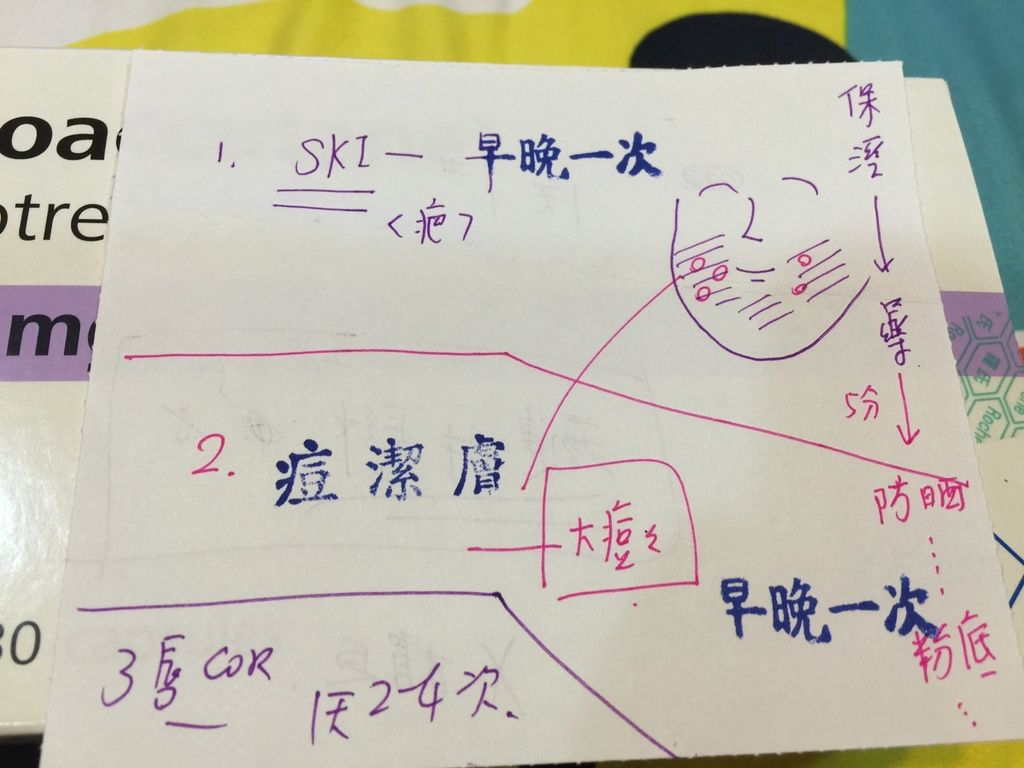 oa
otre
mg
30
1. SKI — 早晚一次
<疤>
保溼
↓
藥
5分 ↓
防晒
⋮
粉底
⋮
2. 痘潔膚
大痘痘
早晚一次
3唇 COR 1天2-4次.
Roche